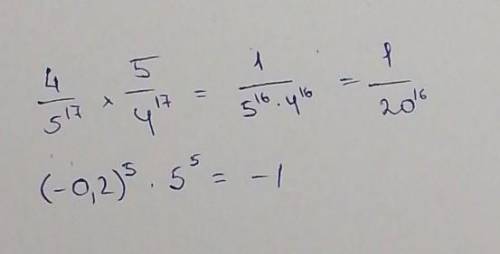 4/5¹⁷ × 5/4¹⁷ = 1/(5¹⁶ · 4¹⁶) = 1/20¹⁶
(-0,2)⁵ · 5⁵ = -1